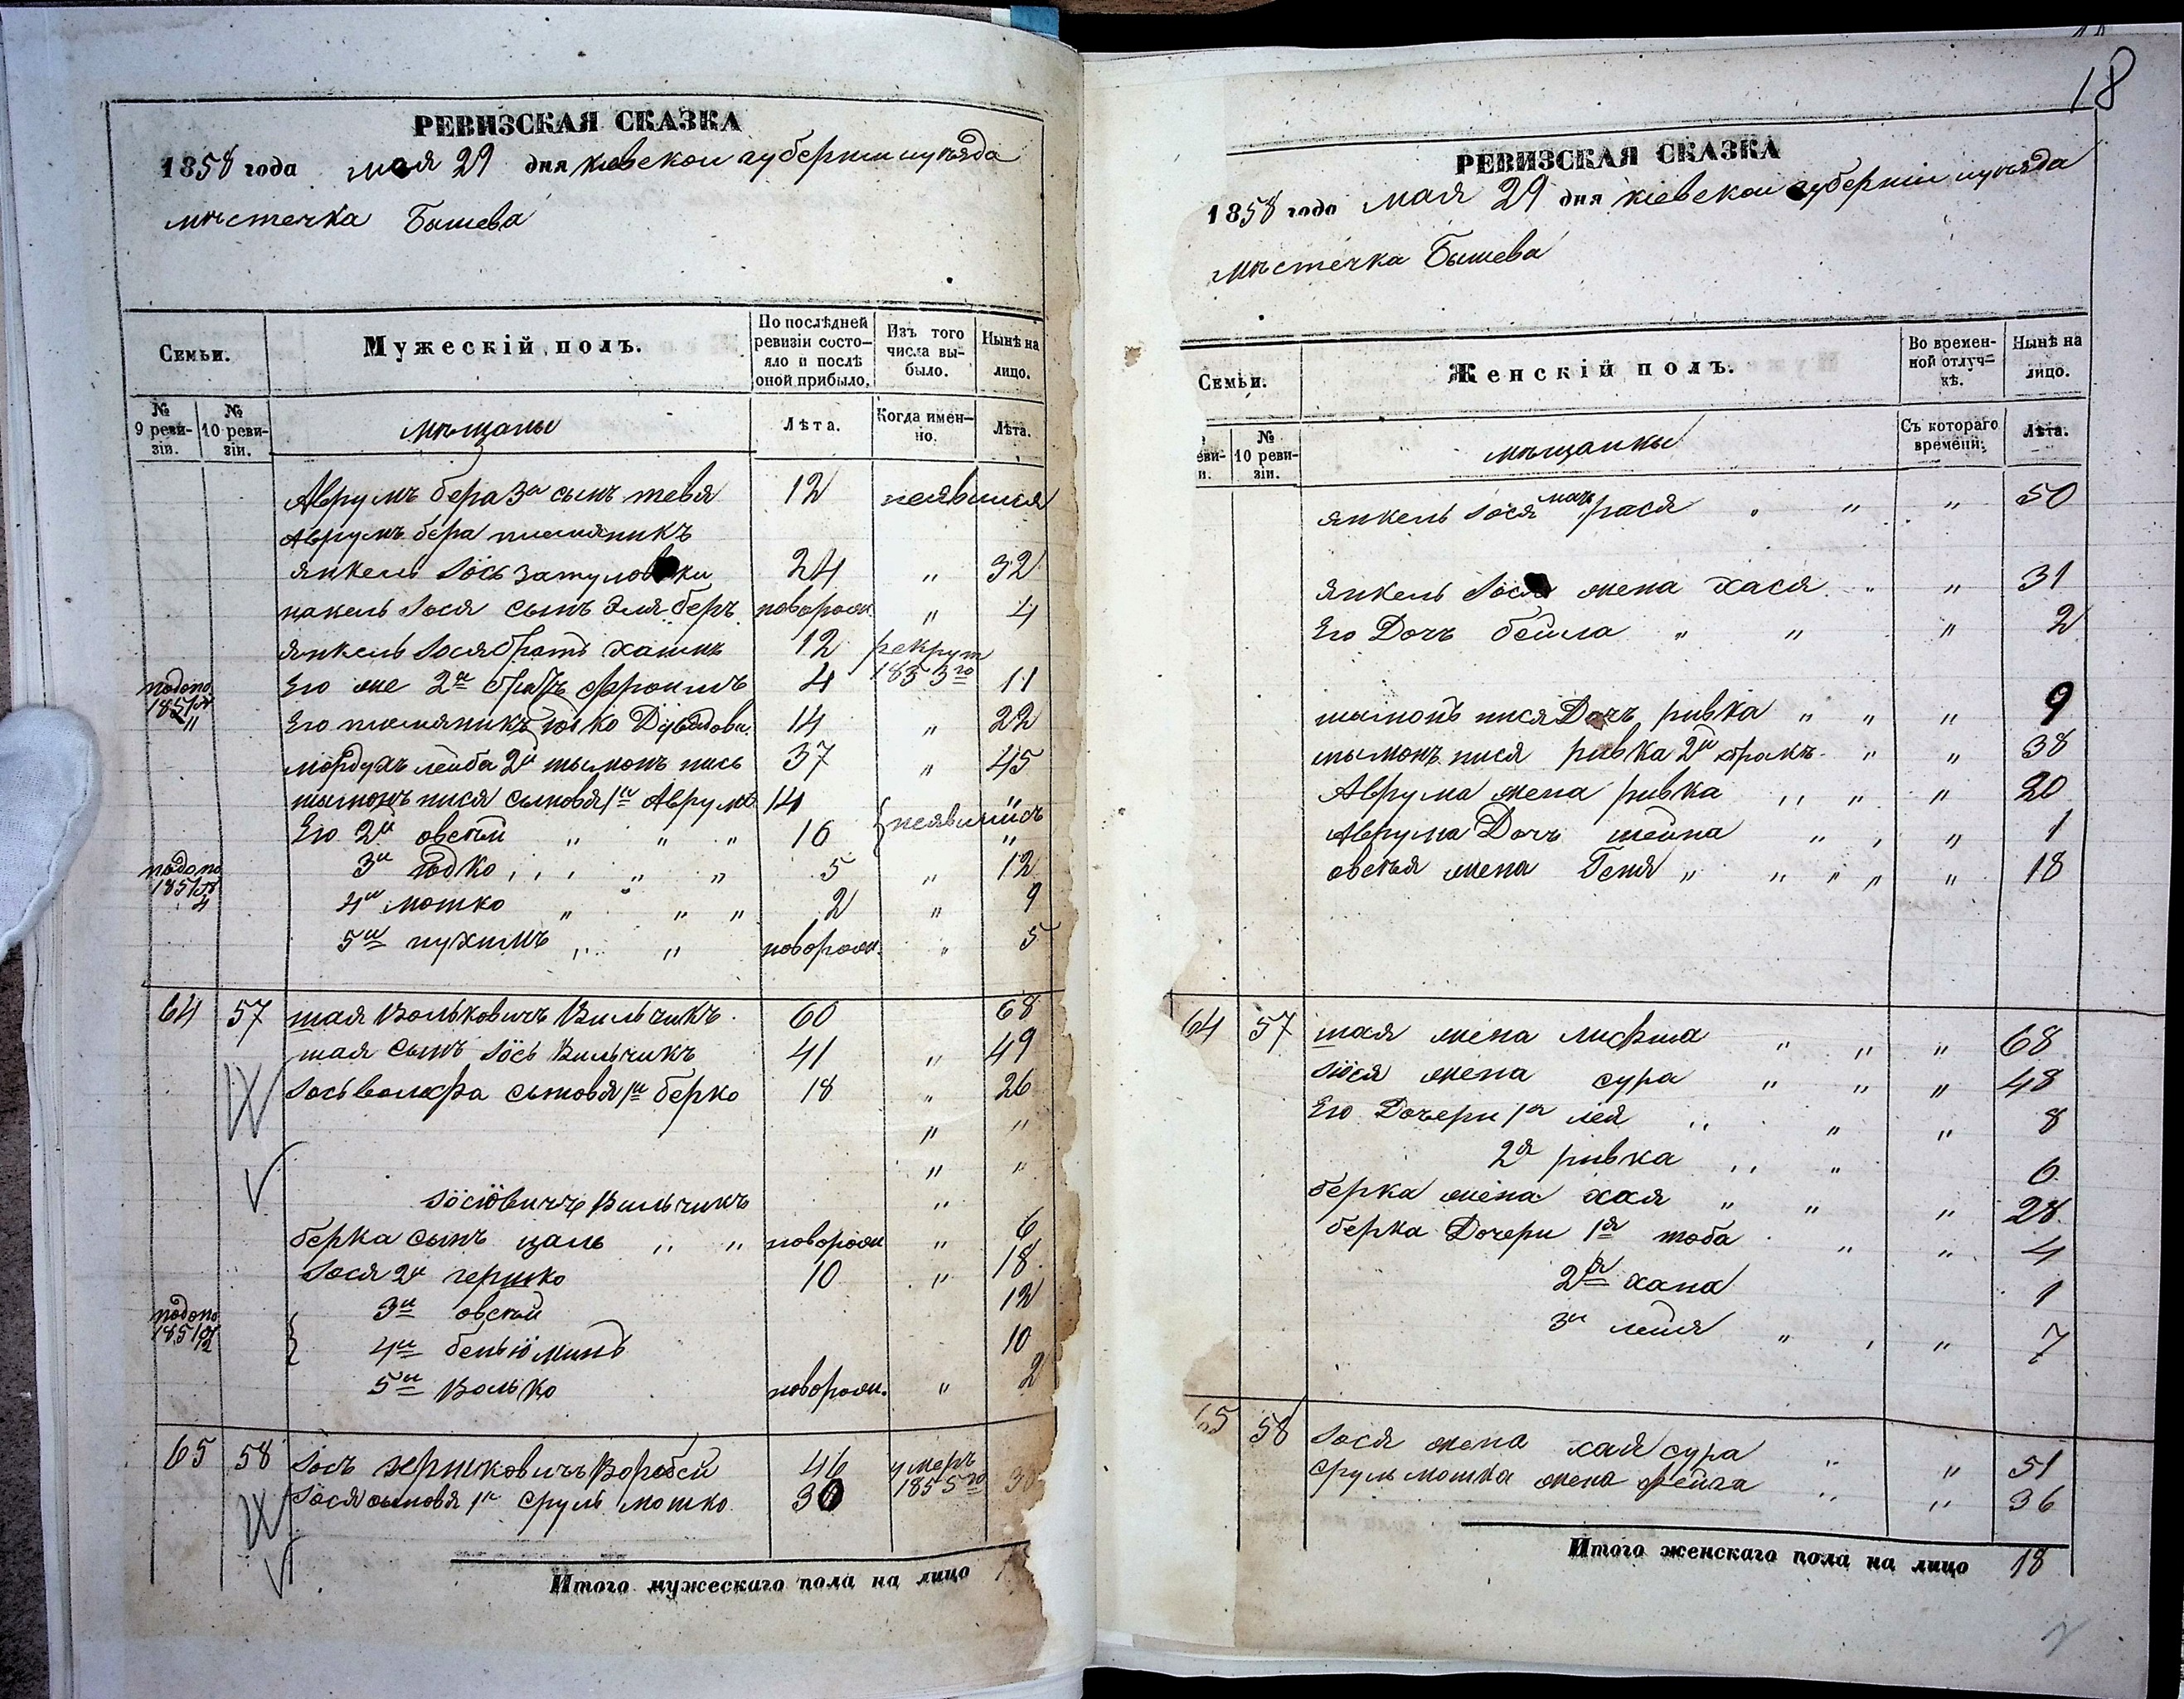 18
РЕВИЗСКАЯ СКАЗКА
1858 года мая 29 дня киевской губерніи и уѣзда
мѣстечка Бышева
Семьи.
Мужескій полъ.
По послѣдней ревизіи состояло и послѣ оной прибыло.
Изъ того числа выбыло.
Нынѣ на лицо.
№ 9 ревизіи.
№ 10 ревизіи.
мѣщаны
Лѣта.
Когда именно.
Лѣта.
Аврумъ бера 3й сынъ тевя 12 неявился
Аврумъ бера племяникъ
янкель Іось 24 " 32
Іося сынъ Эля беръ новорож. " 4
янкель Іося братъ хаимъ 12 рекрут 1853го
Его же 2й братъ Фроимъ 4 11
Его племяникъ 14 " 22
мордухъ лейба 2й шымонъ пись 37 " 45
шымонъ пися сыновя 1й Аврумъ 14 неявились
Его 2й овсѣй " " " 16 "
3й " " 5 " 12
4й мошко " " " 2 " 9
5й нухимъ " " новорож. " 5
64 57 шая Вольковичъ Вильчикъ 60 68
шая сынъ Іось Вильчикъ 41 " 49
Іось волфа сыновя 1й берко 18 " 26
" "
" "
Іосіовичъ Вильчикъ "
берка сынъ цаль " " новорож " 6
Іося 2й гершко 10 " 18
3й овсѣй 12
4й беньюминъ 10
5й Волько новорож. " 2
65 58 Іось гершковичъ Воробей 46 умеръ 1855го
Іося сыновя 1й сруль мошко 30 38
Итого мужескаго пола на лицо
РЕВИЗСКАЯ СКАЗКА
1858 года мая 29 дня кіевской губерніи и уѣзда
мѣстечка Бышева
Семьи.
Женскій полъ.
Во временной отлучкѣ.
Нынѣ на лицо.
№ 10 ревизіи.
мѣщанкы
Съ котораго времени.
Лѣта.
янкель Іося мать рася " " 50
янкель Іося жена хася " " 31
Его Дочъ бейла " " " 2
шымонъ пися Дочъ ривка " " " 9
шымонъ пися ривка 2й бракъ " " 38
Аврума жена ривка " " " 20
Аврума Дочъ шейна " " " 1
овсѣя жена Геня " " " " " 18
64 57 шая жена " " " 68
Іося жена сура " " " 48
Его Дочери 1я лея " " " 8
2я ривка " " 6
берка жена хая " " " 28
берка Дочери 1я тоба " " 4
2я хана 1
3я лейя " " " 7
65 58 Іося жена хая сура " " 51
Сруль мошка жена фейга " " 36
Итого женскаго пола на лицо 18